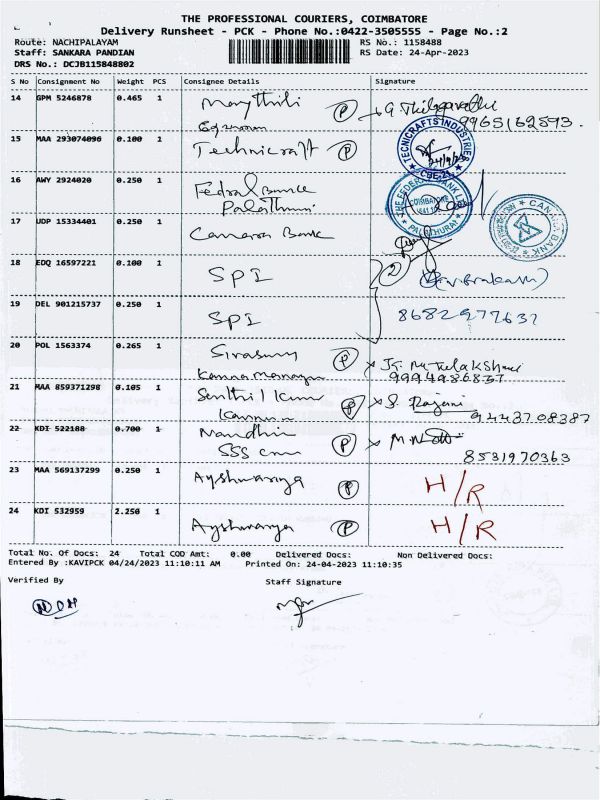 THE PROFESSIONAL COURIERS, COIMBATORE
Delivery Runsheet - PCK - Phone No.:0422-3505555 - Page No.:2
Route: NACHIPALAYAM
RS No.: 1158488
Staff: SANKARA PANDIAN
RS Date: 24-Apr-2023
DRS No.: DCJB115848802
S No Consignment No Weight PCS Consignee Details Signature
14 GPM 5246878 0.465 1 Maythili P
9965162893
15 MAA 293074096 0.100 1 Technicraft P
TECNICRAFTS INDUSTRIES
16 AWY 2924020 0.250 1 Fedral Bance
Palathuri
THE FEDERAL BANK
COIMBATORE
17 UDP 15334401 0.250 1 Canara Bank
CANARA BANK
18 EDQ 16597221 0.100 1 SPI 2
19 DEL 901215737 0.250 1 SPI 8682977637
20 POL 1563374 0.265 1 P
9994986837
21 MAA 859371298 0.105 1 Senthil Kum P S. Rajani
9443708387
22 KDI 522188 0.700 1 Nandhin P
SSS 8531970363
23 MAA 569137299 0.250 1 Ayshwarya P H/R
24 KDI 532959 2.250 1 Ayshwarya P H/R
Total No. Of Docs: 24 Total COD Amt: 0.00 Delivered Docs: Non Delivered Docs:
Entered By :KAVIPCK 04/24/2023 11:10:11 AM Printed On: 24-04-2023 11:10:35
Verified By Staff Signature